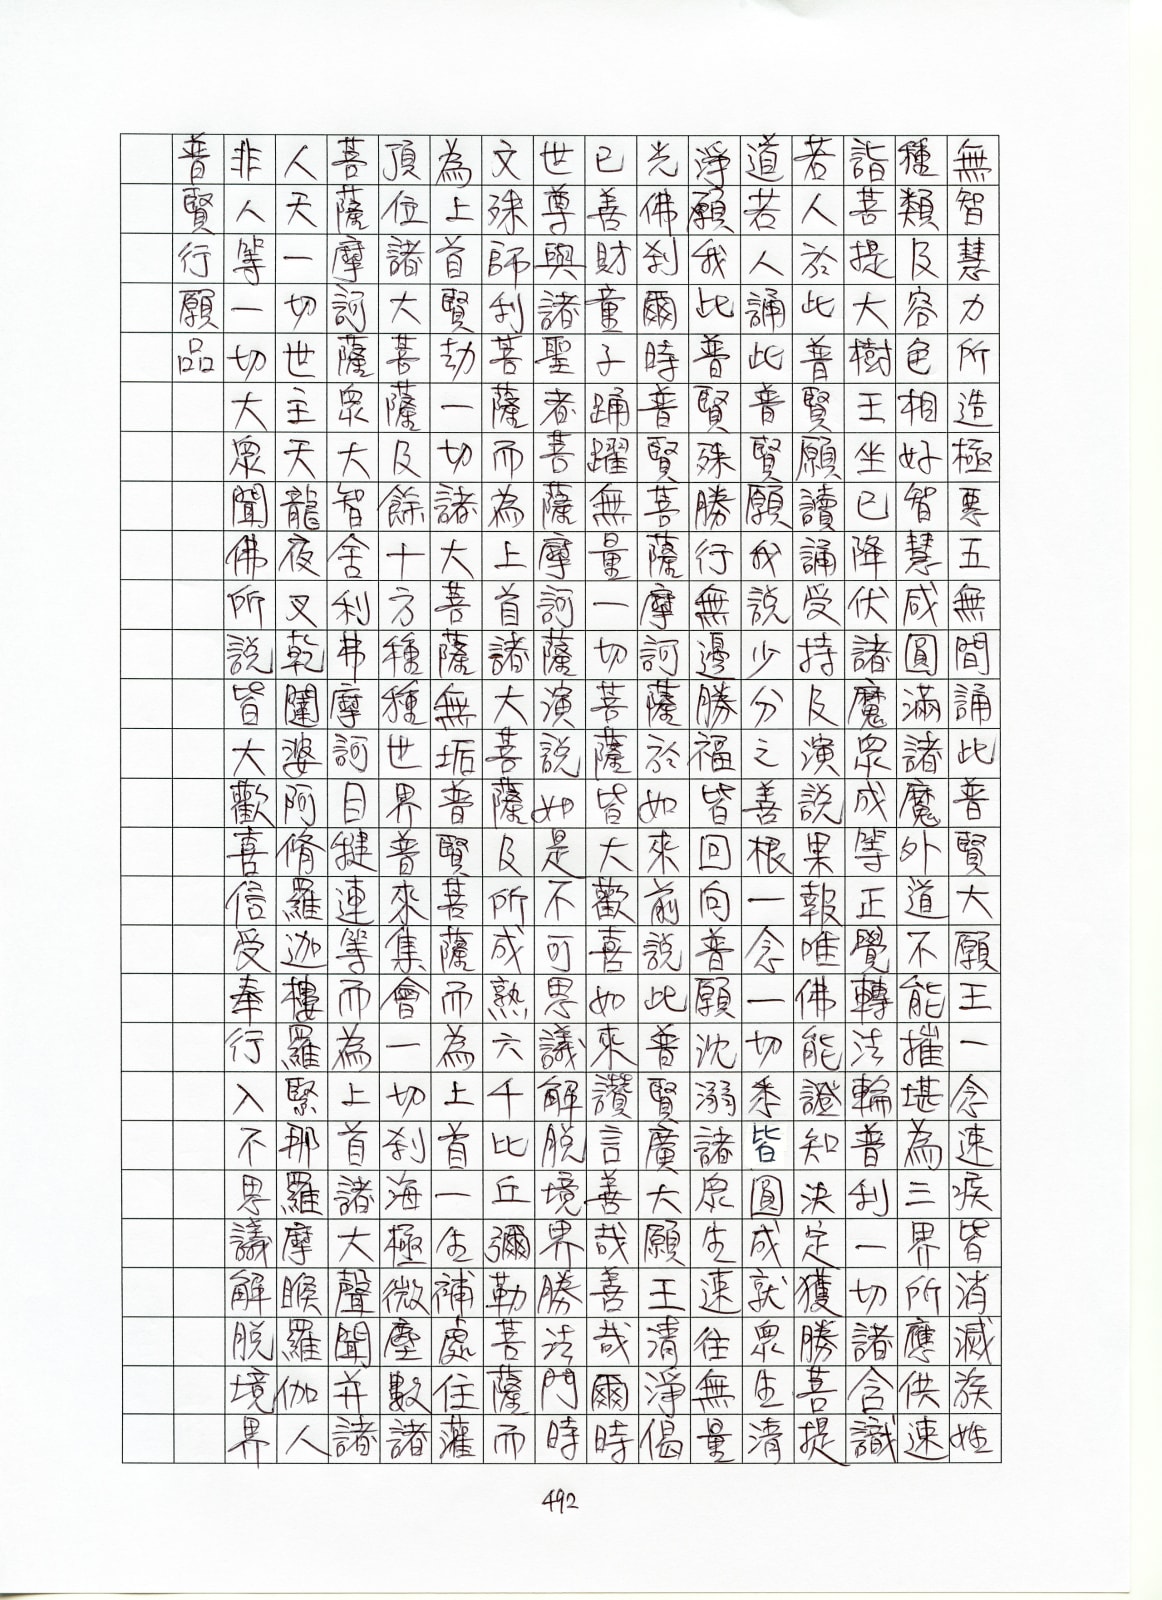 無智慧力所造極惡五無間誦此普賢大願王一念速疾皆消滅族姓
種類及容色相好智慧咸圓滿諸魔外道不能摧堪為三界所應供速
詣菩提大樹王坐已降伏諸魔眾成等正覺轉法輪普利一切諸含識
若人於此普賢願讀誦受持及演說果報唯佛能證知決定獲勝菩提
道若人誦此普賢願我說少分之善根一念一切悉皆圓成就眾生清
淨願我此普賢殊勝行無邊勝福皆回向普願沈溺諸眾生速往無量
光佛剎爾時普賢菩薩摩訶薩於如來前說此普賢廣大願王清淨偈
已善財童子踊躍無量一切菩薩皆大歡喜如來讚言善哉善哉爾時
世尊與諸聖者菩薩摩訶薩演說如是不可思議解脫境界勝法門時
文殊師利菩薩而為上首諸大菩薩及所成熟六千比丘彌勒菩薩而
為上首賢劫一切諸大菩薩無垢普賢菩薩而為上首一生補處住灌
頂位諸大菩薩及餘十方種種世界普來集會一切剎海極微塵數諸
菩薩摩訶薩眾大智舍利弗摩訶目犍連等而為上首諸大聲聞并諸
人天一切世主天龍夜叉乾闥婆阿脩羅迦樓羅緊那羅摩睺羅伽人
非人等一切大眾聞佛所說皆大歡喜信受奉行入不思議解脫境界
普賢行願品
492